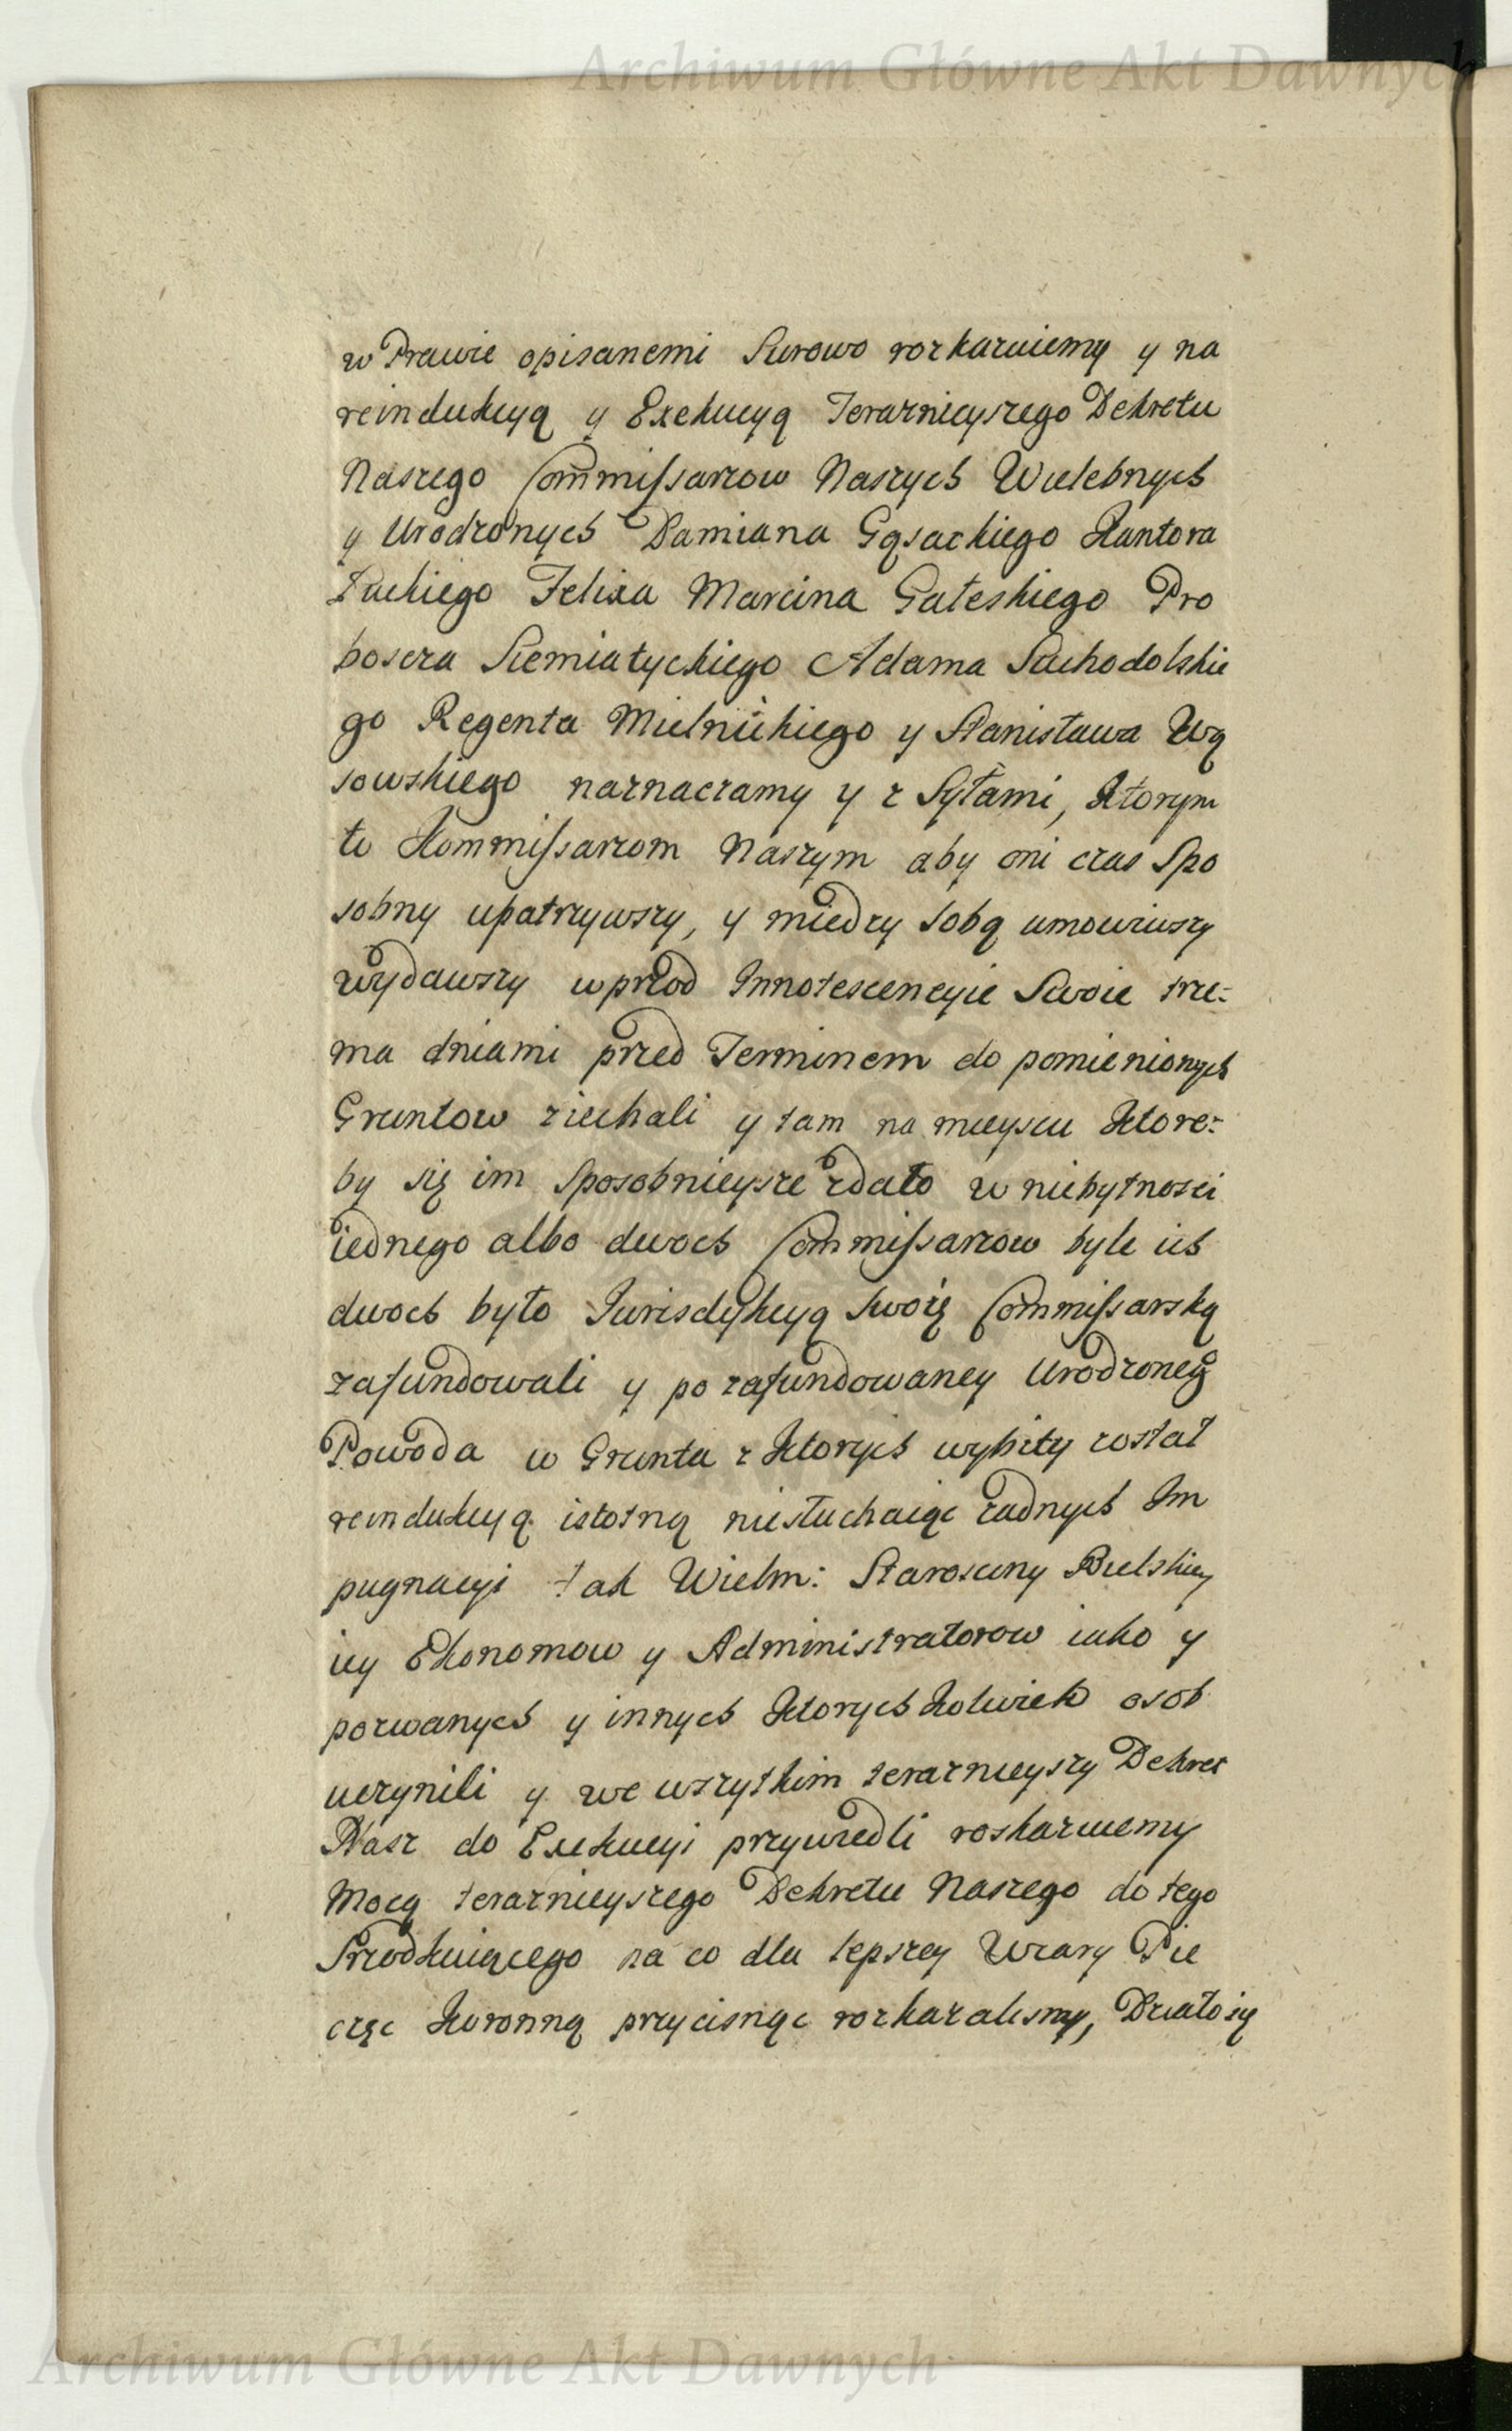 Archiwum Główne Akt Dawnych
w Prawie opisanemi Surowo rozkazuiemy y na
reindukcyą y Exekucyą Teraznieyszego Dekretu
Naszego Commissarzow Naszych Wielebnych
y Urodzonych Damiana Gąsackiego Kantora
Łuckiego Felixa Marcina Gałeskiego Pro
boscza Siemiatyckiego Adama Suchodolskie
go Regenta Mielnickiego y Stanisława Wą
sowskiego naznaczamy y z Syłami, Ktorym
to Kommissarzom Naszym aby oni czas Spo
sobny upatrzywszy, y miedzy Sobą umowiwszy
wydawszy wprzod Innotescencyie Swoie trze-
ma dniami przed Terminem do pomienionych
Gruntow ziechali y tam na mieyscu Ktore-
by się im Sposobnieysze zdało w niebytnosci
iednego albo dwoch Commissarzow byle ich
dwoch było Jurisdykcyą Swoię Commissarską
zafundowali y po zafundowaney Urodzoneg
Powoda w Grunta z Ktorych wybity został
reindukcyą istotną niesłuchaiąc żadnych Im
pugnacyi tak Wielm: Starosciny Bielskiey
iey Ekonomow y Administratorow iako y
pozwanych y innych Ktorychkolwiek osob
uczynili y we wszytkim teraznieyszy Dekret
Nasz do Exekucyi przywiedli roskazuiemy
Mocą teraznieyszego Dekretu Naszego do tego
Srzodkuiącego na co dla lepszey Wiary Pie
częc Koronną przycisnąc rozkazalismy, Działo się
Archiwum Główne Akt Dawnych